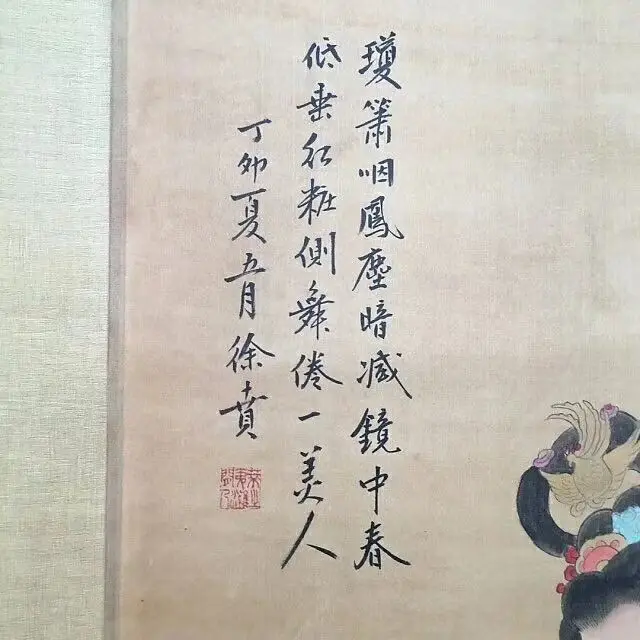 瓊簫咽鳳塵暗減鏡中春
低垂紅粧側舞倦一美人
丁卯夏五月徐賁